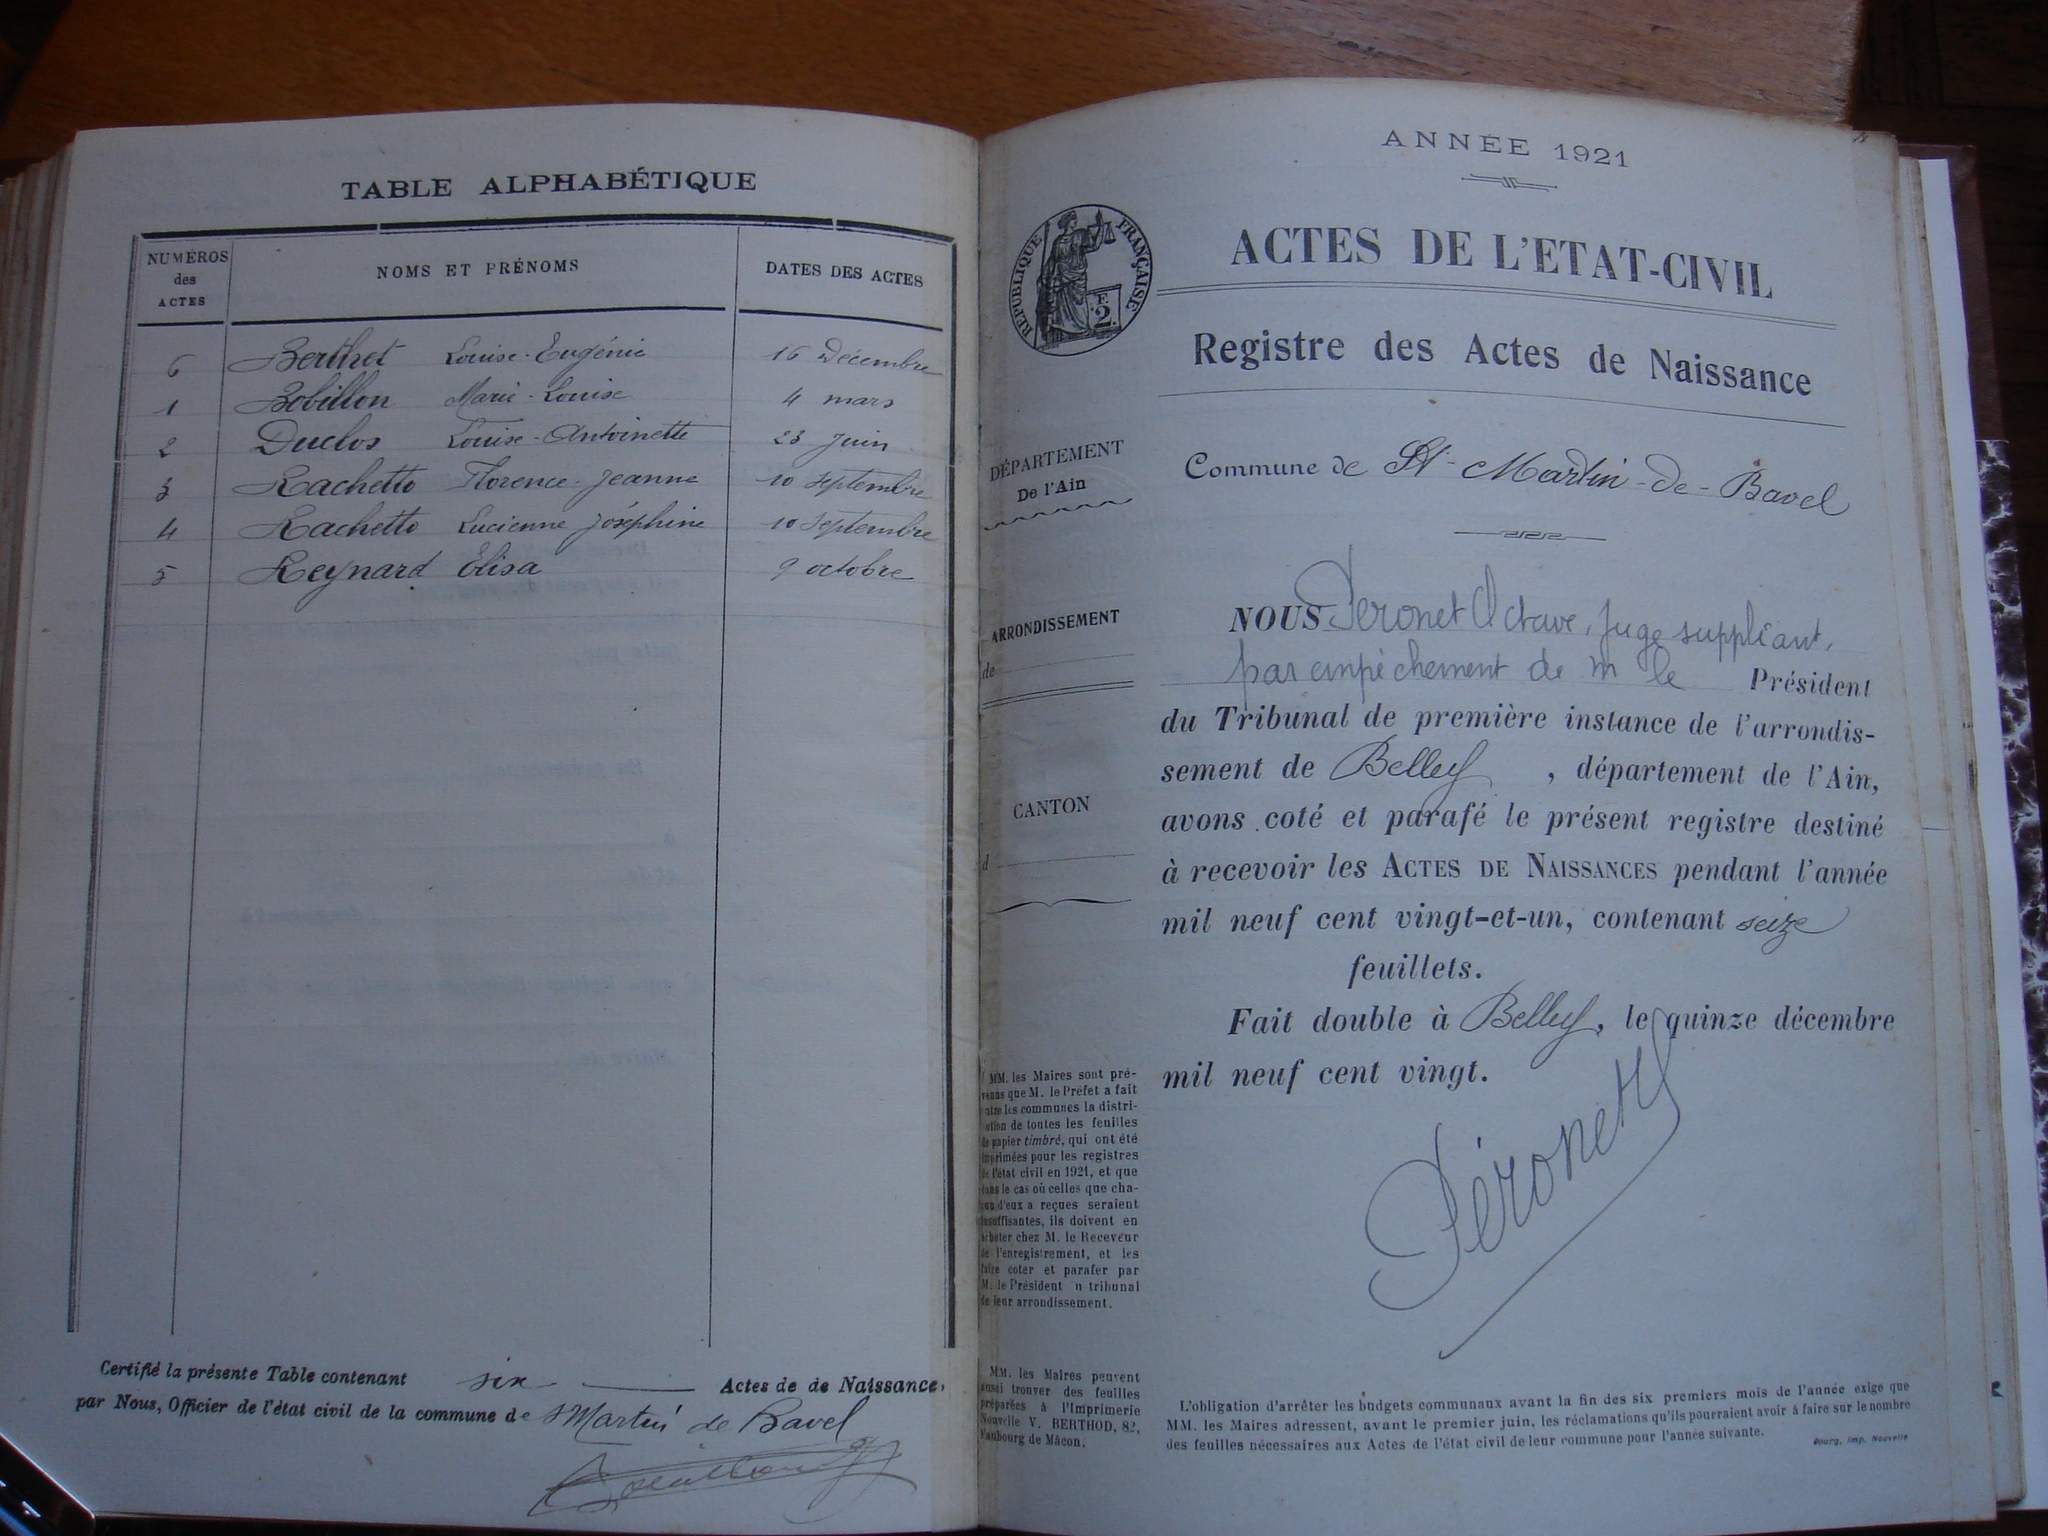 TABLE ALPHABÉTIQUE
NUMÉROS des ACTES
NOMS ET PRÉNOMS
DATES DES ACTES
6 Berthet Louise-Eugénie 16 Décembre
1 Bobillon Marie-Louise 4 mars
2 Duclos Louise-Antoinette 23 Juin
3 Rachetto Florence-Jeanne 10 Septembre
4 Rachetto Lucienne Joséphine 10 Septembre
5 Reynard Elisa 9 octobre
Certifié la présente Table contenant six Actes de de Naissance,
par Nous, Officier de l'état civil de la commune de St Martin de Bavel
ANNÉE 1921
RÉPUBLIQUE FRANÇAISE
F.
2
ACTES DE L'ETAT-CIVIL
Registre des Actes de Naissance
DÉPARTEMENT
De l'Ain
Commune de St-Martin-de-Bavel
ARRONDISSEMENT
de
CANTON
d
NOUS Péronet Octave, juge suppliant,
par empêchement de m le Président
du Tribunal de première instance de l'arrondis-
sement de Belley, département de l'Ain,
avons coté et parafé le présent registre destiné
à recevoir les ACTES DE NAISSANCES pendant l'année
mil neuf cent vingt-et-un, contenant seize
feuillets.
Fait double à Belley, le quinze décembre
mil neuf cent vingt.
Péronet
MM. les Maires sont pré-
venus que M. le Préfet a fait
entre les communes la distri-
bution de toutes les feuilles
de papier timbré, qui ont été
imprimées pour les registres
de l'état civil en 1921, et que
dans le cas où celles que cha-
cun d'eux a reçues seraient
insuffisantes, ils doivent en
acheter chez M. le Receveur
de l'enregistrement, et les
faire coter et parafer par
M. le Président u tribunal
de leur arrondissement.
MM. les Maires peuvent
aussi trouver des feuilles
préparées à l'Imprimerie
Nouvelle V. BERTHOD, 82,
Faubourg de Mâcon.
L'obligation d'arrêter les budgets communaux avant la fin des six premiers mois de l'année exige que
MM. les Maires adressent, avant le premier juin, les réclamations qu'ils pourraient avoir à faire sur le nombre
des feuilles nécessaires aux Actes de l'état civil de leur commune pour l'année suivante.
Bourg, Imp. Nouvelle